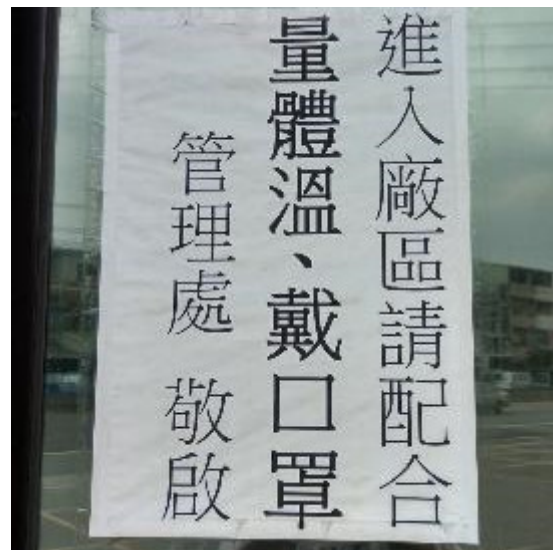 進入廠區請配合
量體溫、戴口罩
管理處 敬啟